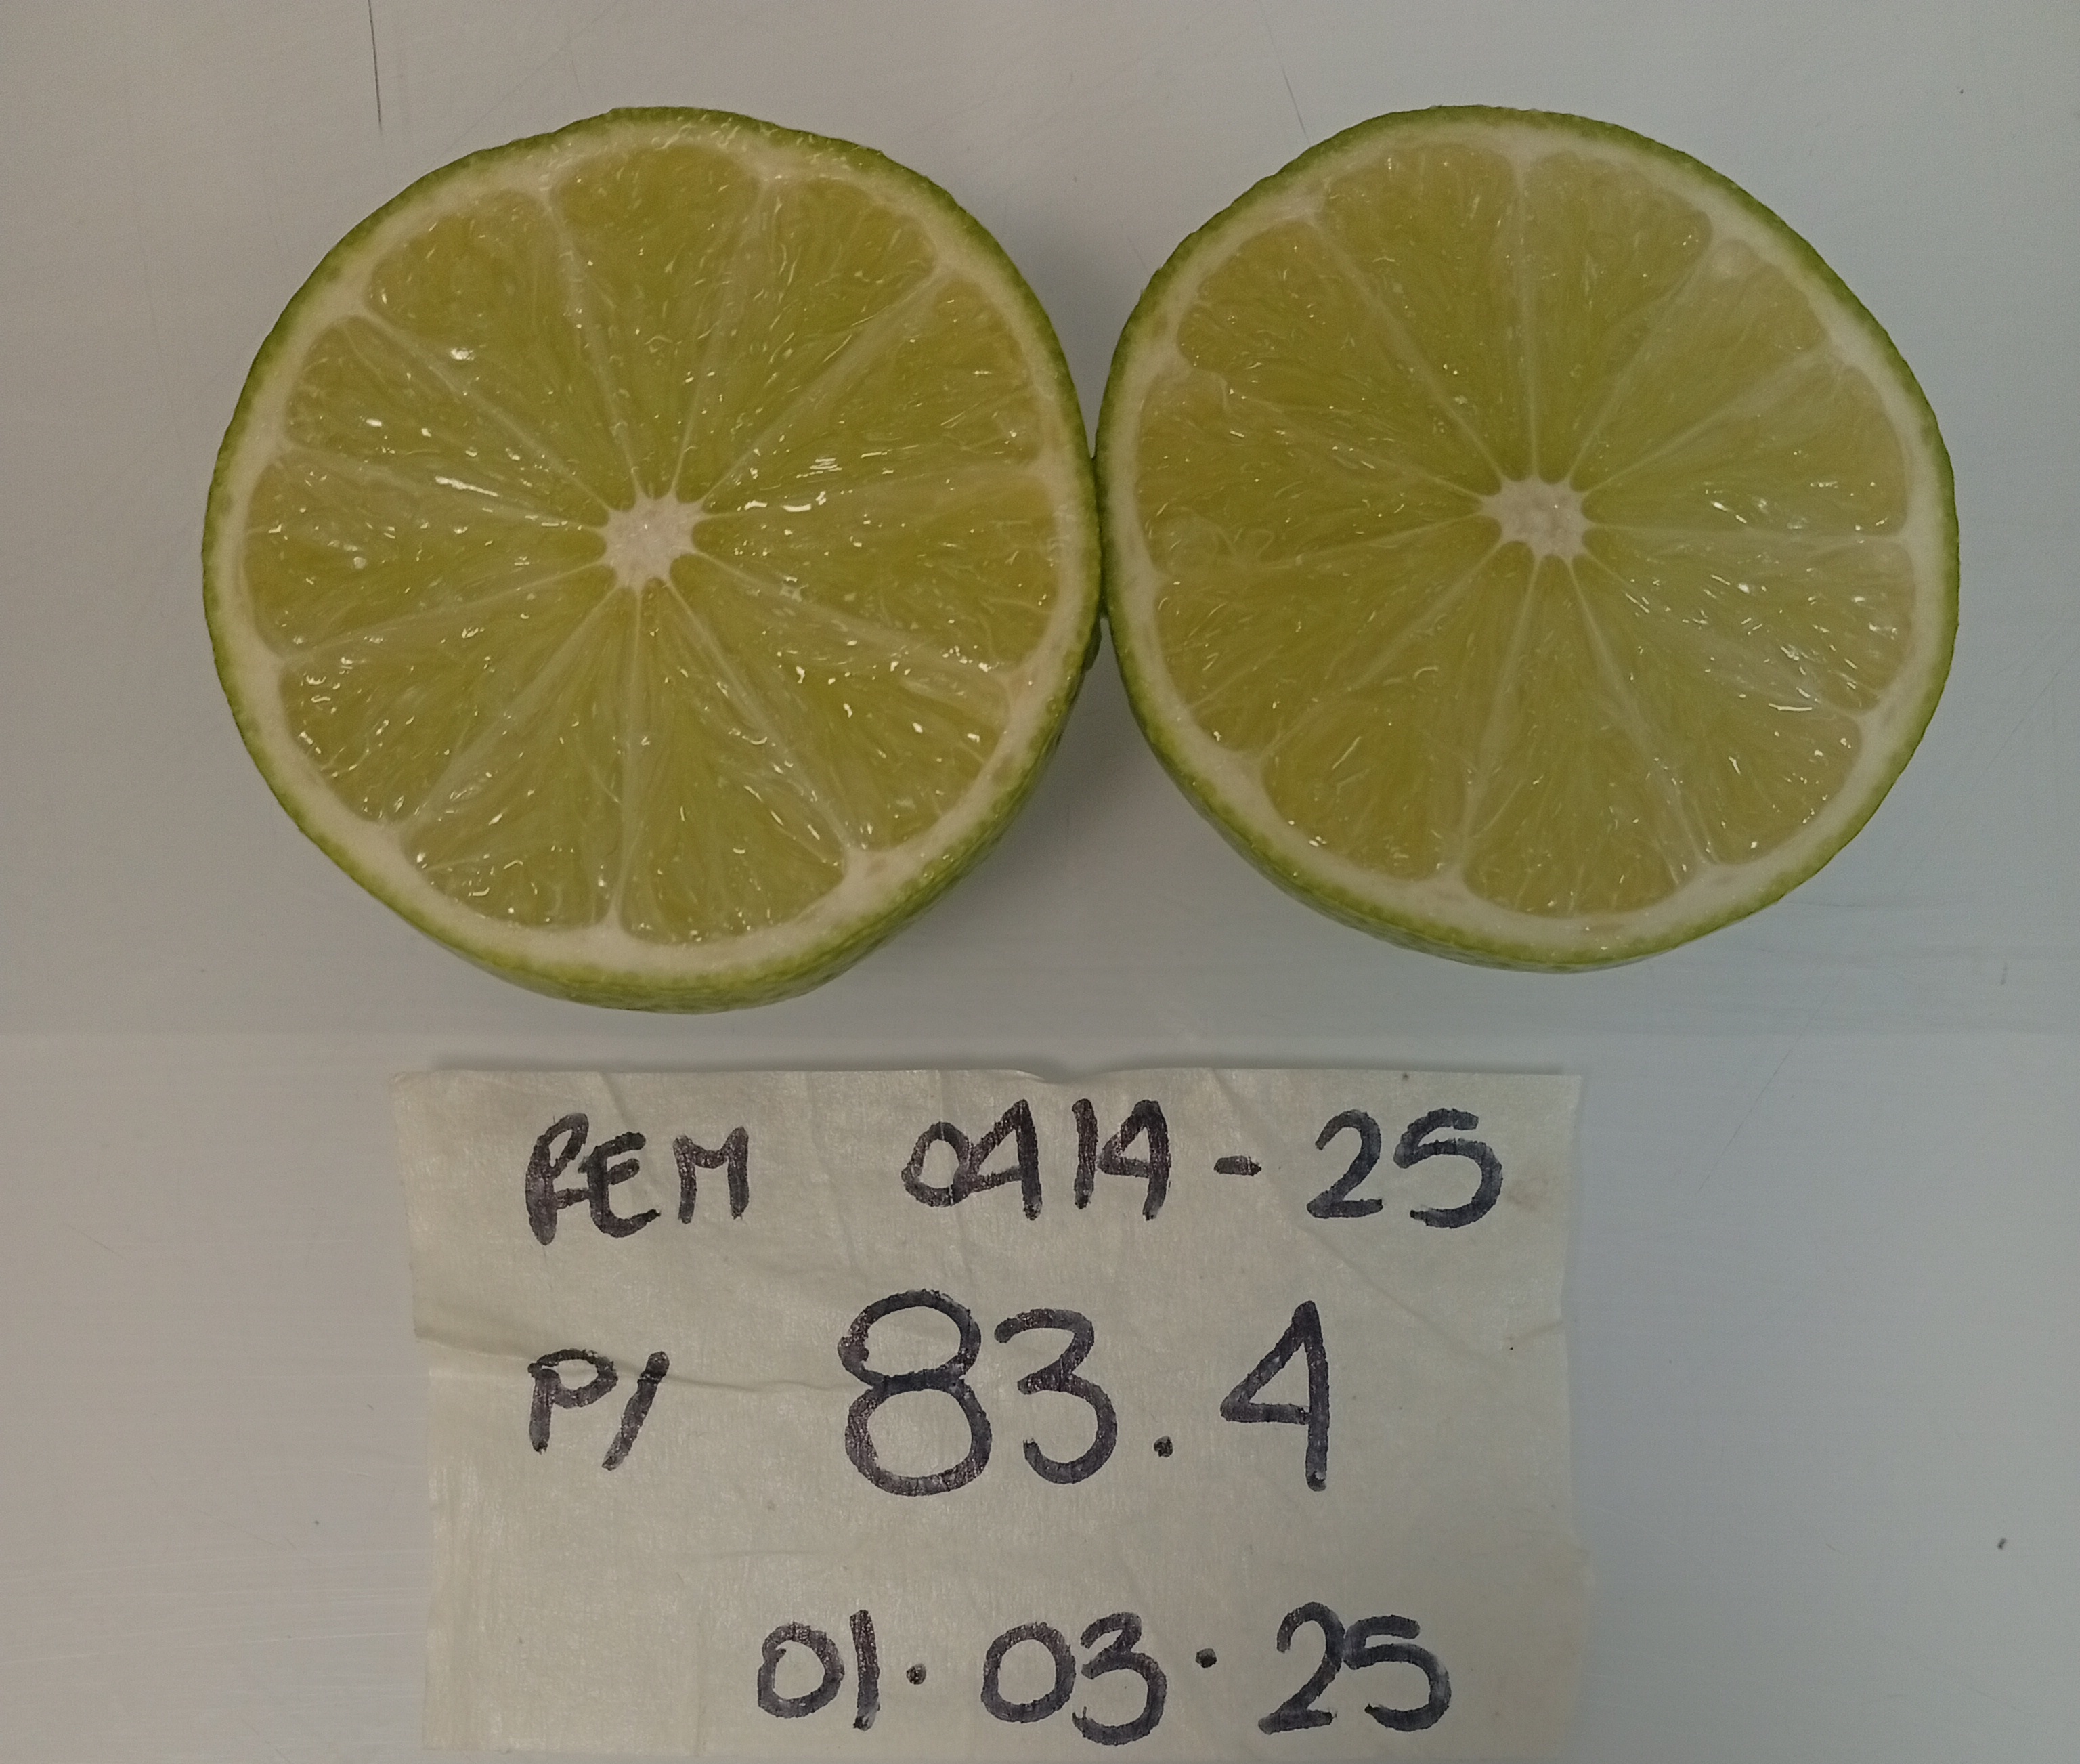 REM 0414-25
P/ 83.4
01.03.25